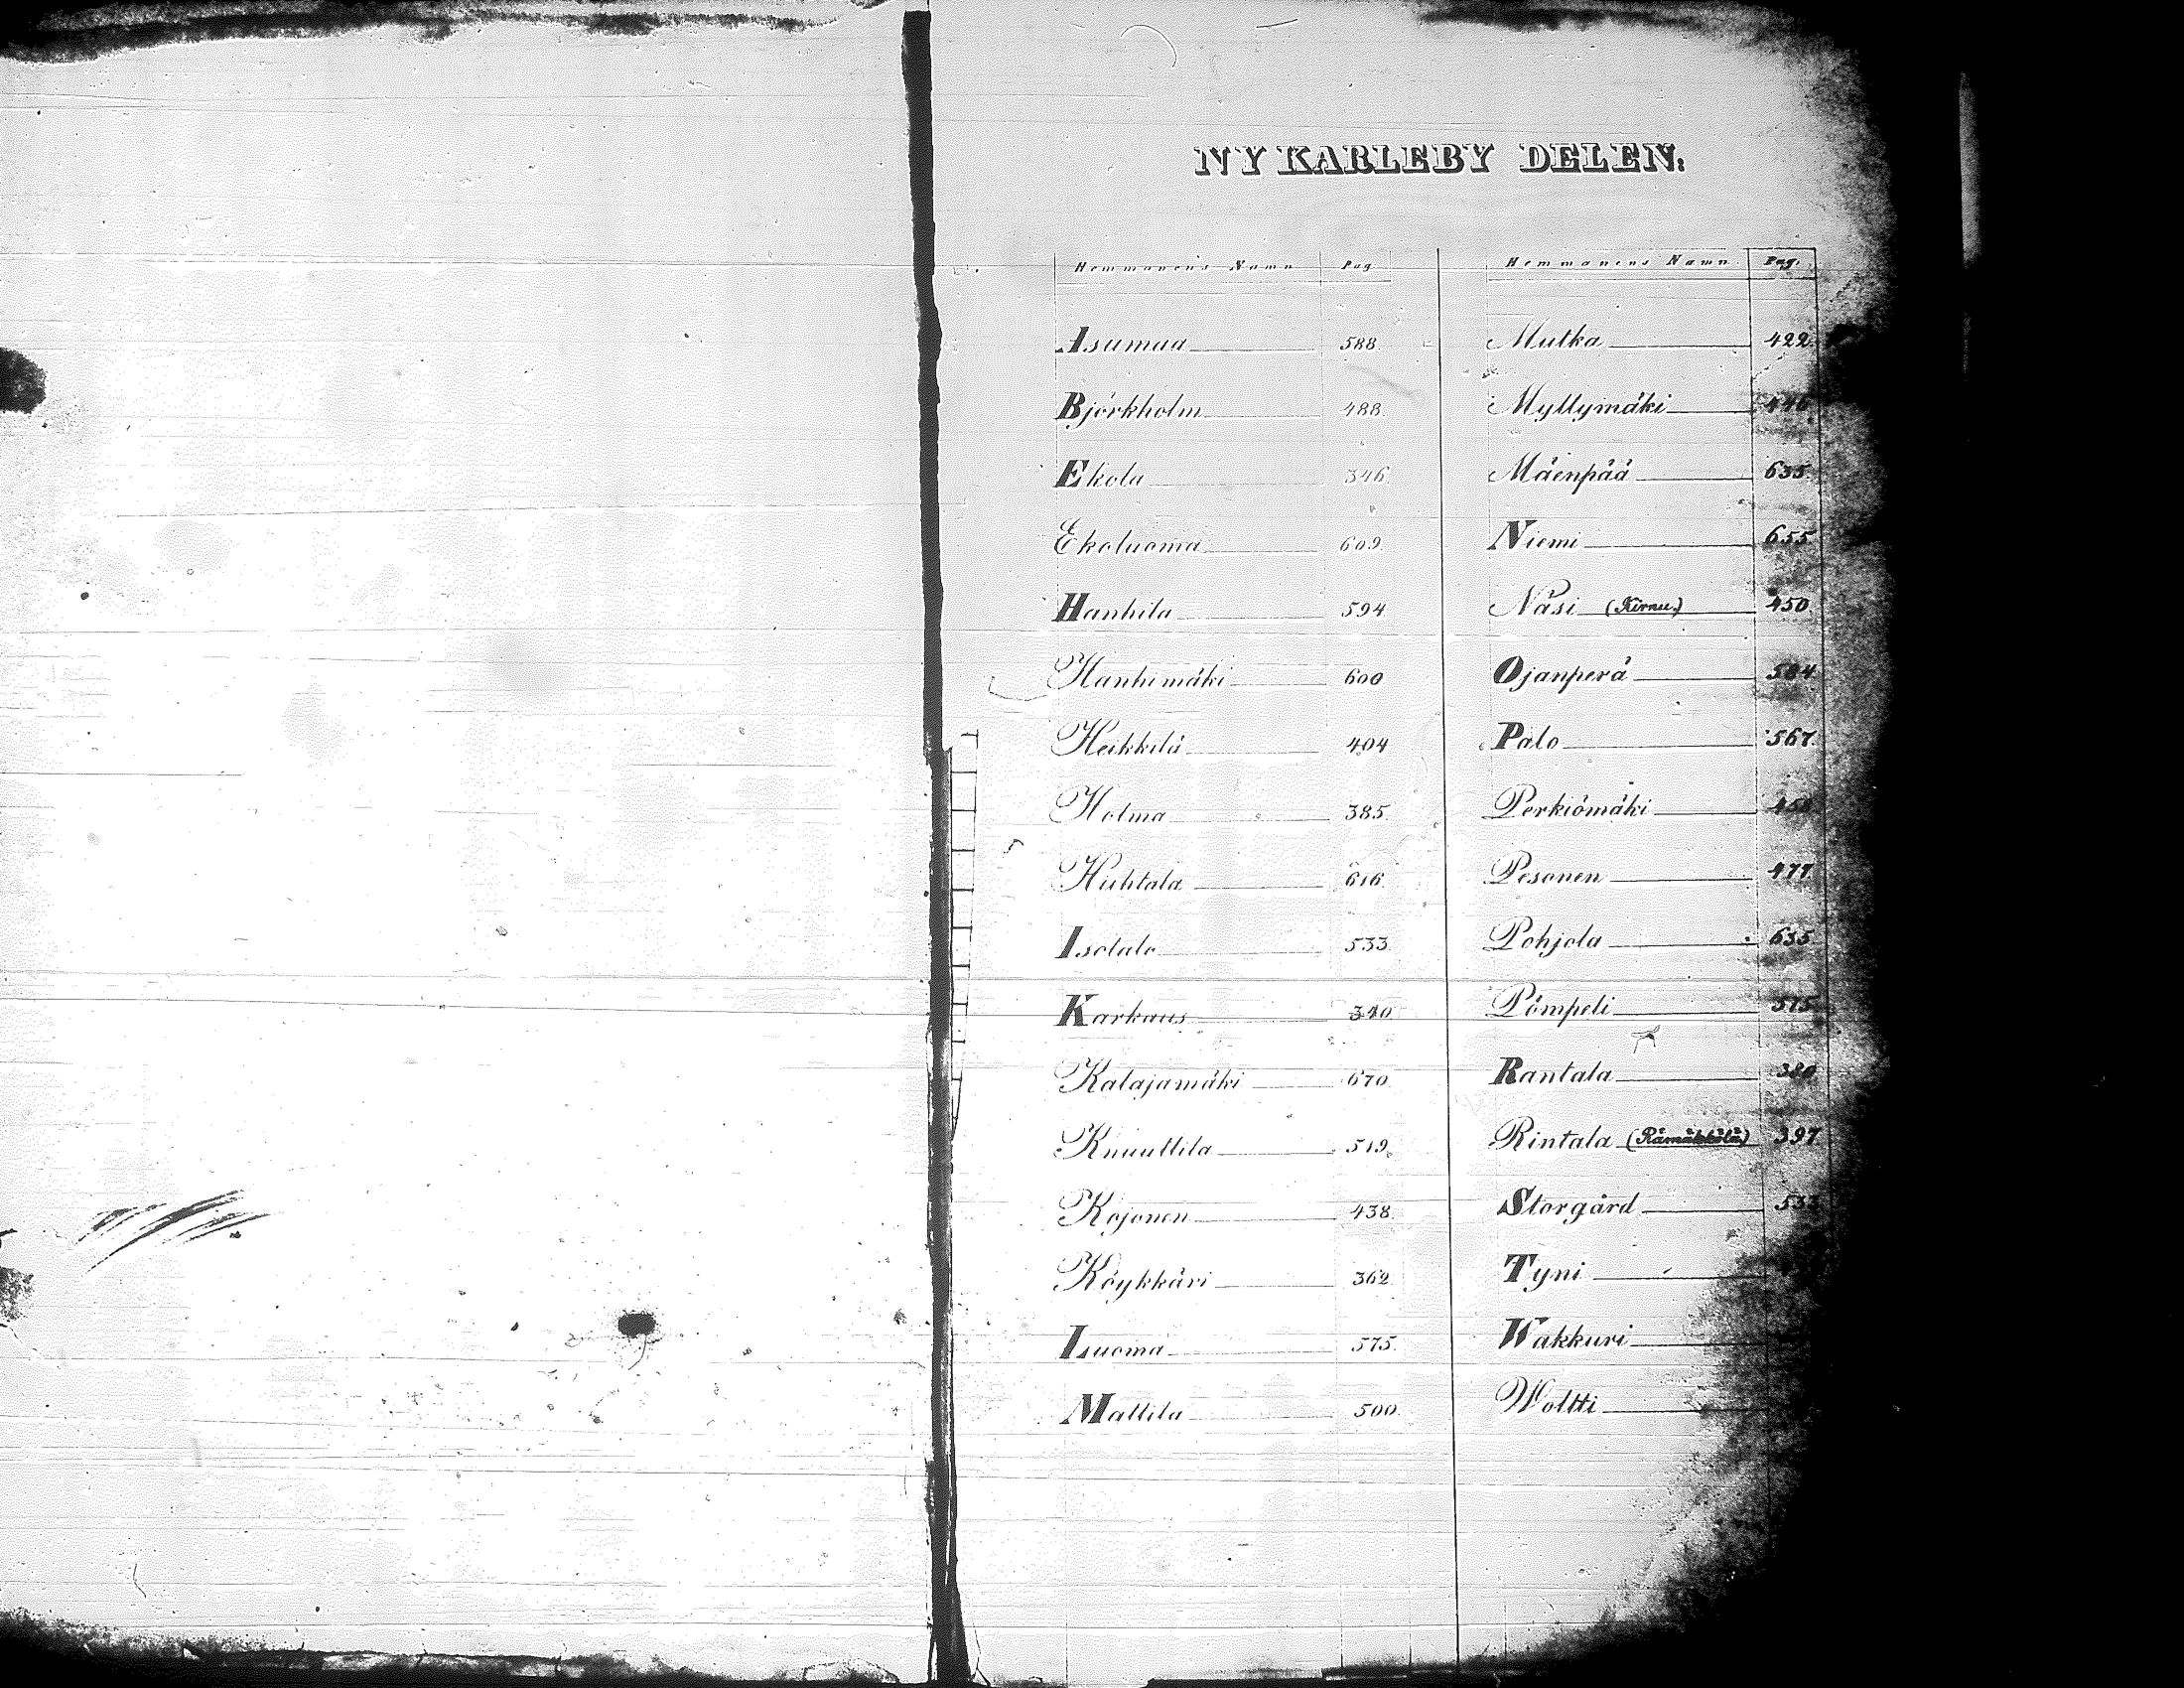 NY KARLEBY DELEN.
Hemmanens Namn Pag
Asumaa 588.
Björkholm 488.
Ekola 346.
Ekoluoma 609.
Hanhila 594
Hanhimäki 600
Heikkilä 404
Holma 385.
Huhtala 616.
Isotalo 533.
Karkaus 340
Kalajamäki 670.
Knuuttila 519.
Kojonen 438.
Köykkäri 362.
Luoma 575.
Mattila 500.
Hemmanens Namn Pag.
Mutka 422.
Myllymäki 446.
Mäenpää 635.
Niemi 655.
Näsi (Kirnu) 450.
Ojanperä 584.
Palo 567.
Perkiömäki
Pesonen 477.
Pohjola 635.
Pömpeli 575.
Rantala 380
Rintala (Rämäkkölä) 397
Storgård 533
Tyni
Wakkuri
Woltti